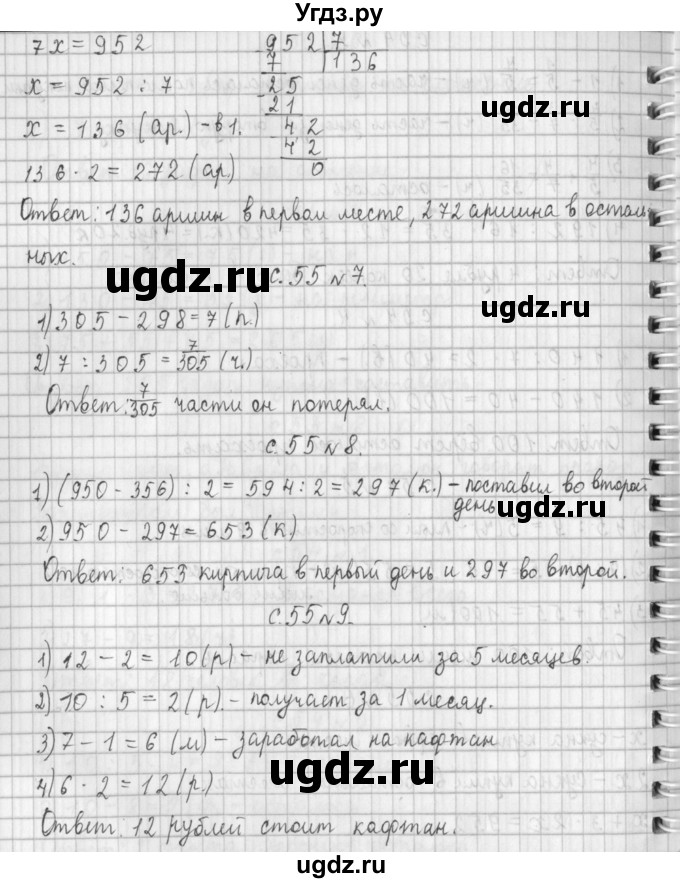 Угдз.ру
7x = 952
952 | 7
7 136
x = 952 : 7
25
21
x = 136 (ар.) - в 1.
42
ugdz.ru
42
136 · 2 = 272 (ар)
0
Ответ: 136 аршин в первом месте, 272 аршина в осталь
ных.
ugdz.ru
с. 55 № 7.
ugdz.ru
1) 305 - 298 = 7 (п.)
2) 7 : 305 = 7/305 (ч.)
ugdz.ru
Ответ: 7/305 части он потерял.
с. 55 № 8.
1) (950 - 356) : 2 = 594 : 2 = 297 (к.) - поставил во второй
день
ugdz.ru
2) 950 - 297 = 653 (к)
ugdz.ru
Ответ: 653 кирпича в первый день и 297 во второй.
с. 55 № 9.
1) 12 - 2 = 10 (р) - не заплатили за 5 месяцев.
ugdz.ru
2) 10 : 5 = 2 (р). - получает за 1 месяц.
3) 7 - 1 = 6 (м) - заработал на кафтан
ugdz.ru
4) 6 · 2 = 12 (р.)
ugdz.ru
Ответ: 12 рублей стоит кафтан.
ugdz.ru